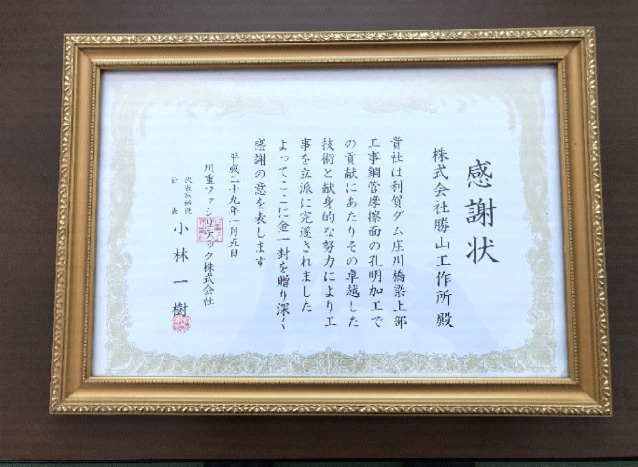 感謝状
株式会社勝山工作所 殿
貴社は利賀ダム庄川橋梁上部
工事鋼管摩擦面の孔明加工で
の貢献にあたりその卓越した
技術と献身的な努力により工
事を立派に完遂されました
よってここに金一封を贈り深く
感謝の意を表します
平成二十九年一月五日
川重ファシリテック株式会社
代表取締役
社長
小林一樹